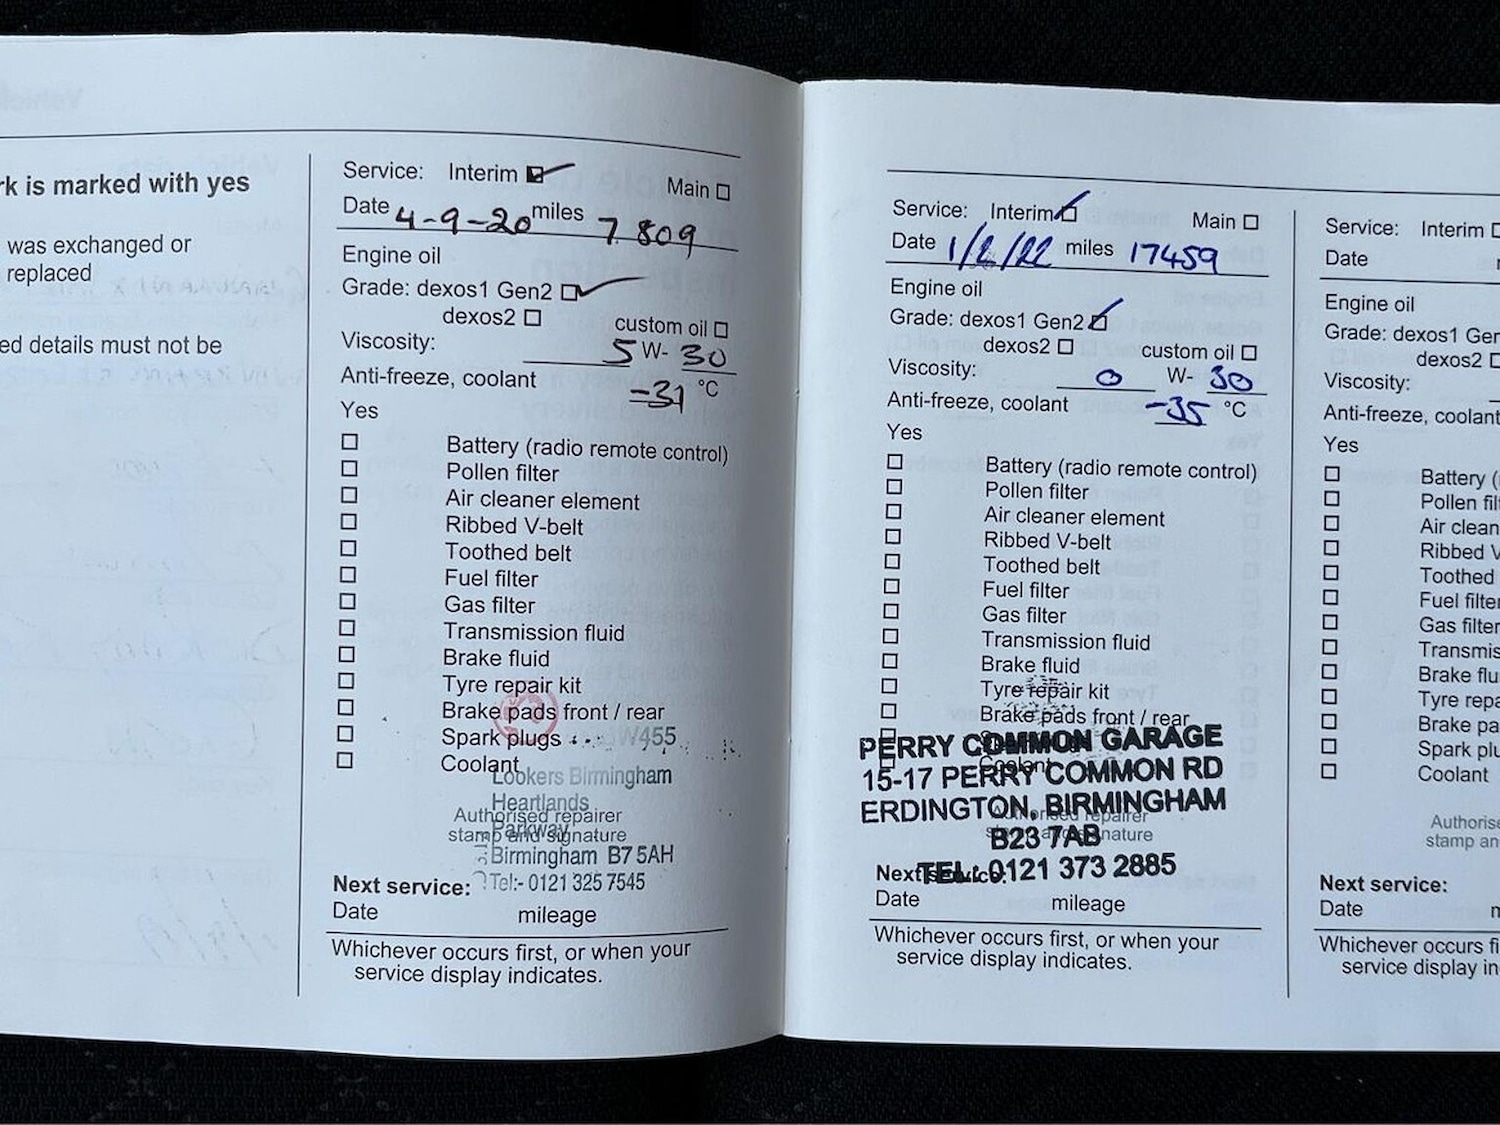 rk is marked with yes
was exchanged or
replaced
ed details must not be
Service: Interim Main
Date 4-9-20 miles 7809
Engine oil
Grade: dexos1 Gen2
dexos2 custom oil
Viscosity: 5 W- 30
Anti-freeze, coolant -31 °C
Yes
Battery (radio remote control)
Pollen filter
Air cleaner element
Ribbed V-belt
Toothed belt
Fuel filter
Gas filter
Transmission fluid
Brake fluid
Tyre repair kit
Brake pads front / rear
Spark plugs W455
Coolant
Lookers Birmingham
Heartlands
Authorised repairer
Parkway
stamp and signature
Birmingham B7 5AH
Tel:- 0121 325 7545
Next service:
Date mileage
Whichever occurs first, or when your
service display indicates.
Service: Interim Main
Date miles 17459
Engine oil
Grade: dexos1 Gen2
dexos2 custom oil
Viscosity: 0 W- 30
Anti-freeze, coolant -35 °C
Yes
Battery (radio remote control)
Pollen filter
Air cleaner element
Ribbed V-belt
Toothed belt
Fuel filter
Gas filter
Transmission fluid
Brake fluid
Tyre repair kit
Brake pads front / rear
PERRY COMMON GARAGE
Coolant
15-17 PERRY COMMON RD
ERDINGTON, BIRMINGHAM
Authorised repairer
stamp and signature
B23 7AB
TEL: 0121 373 2885
Next service:
Date mileage
Whichever occurs first, or when your
service display indicates.
Service: Interim
Date
Engine oil
Grade: dexos1 Gen
dexos2
Viscosity:
Anti-freeze, coolant
Yes
Battery (
Pollen filt
Air clean
Ribbed V
Toothed
Fuel filte
Gas filter
Transmis
Brake flu
Tyre repa
Brake pa
Spark plu
Coolant
Authorise
stamp an
Next service:
Date m
Whichever occurs fi
service display in